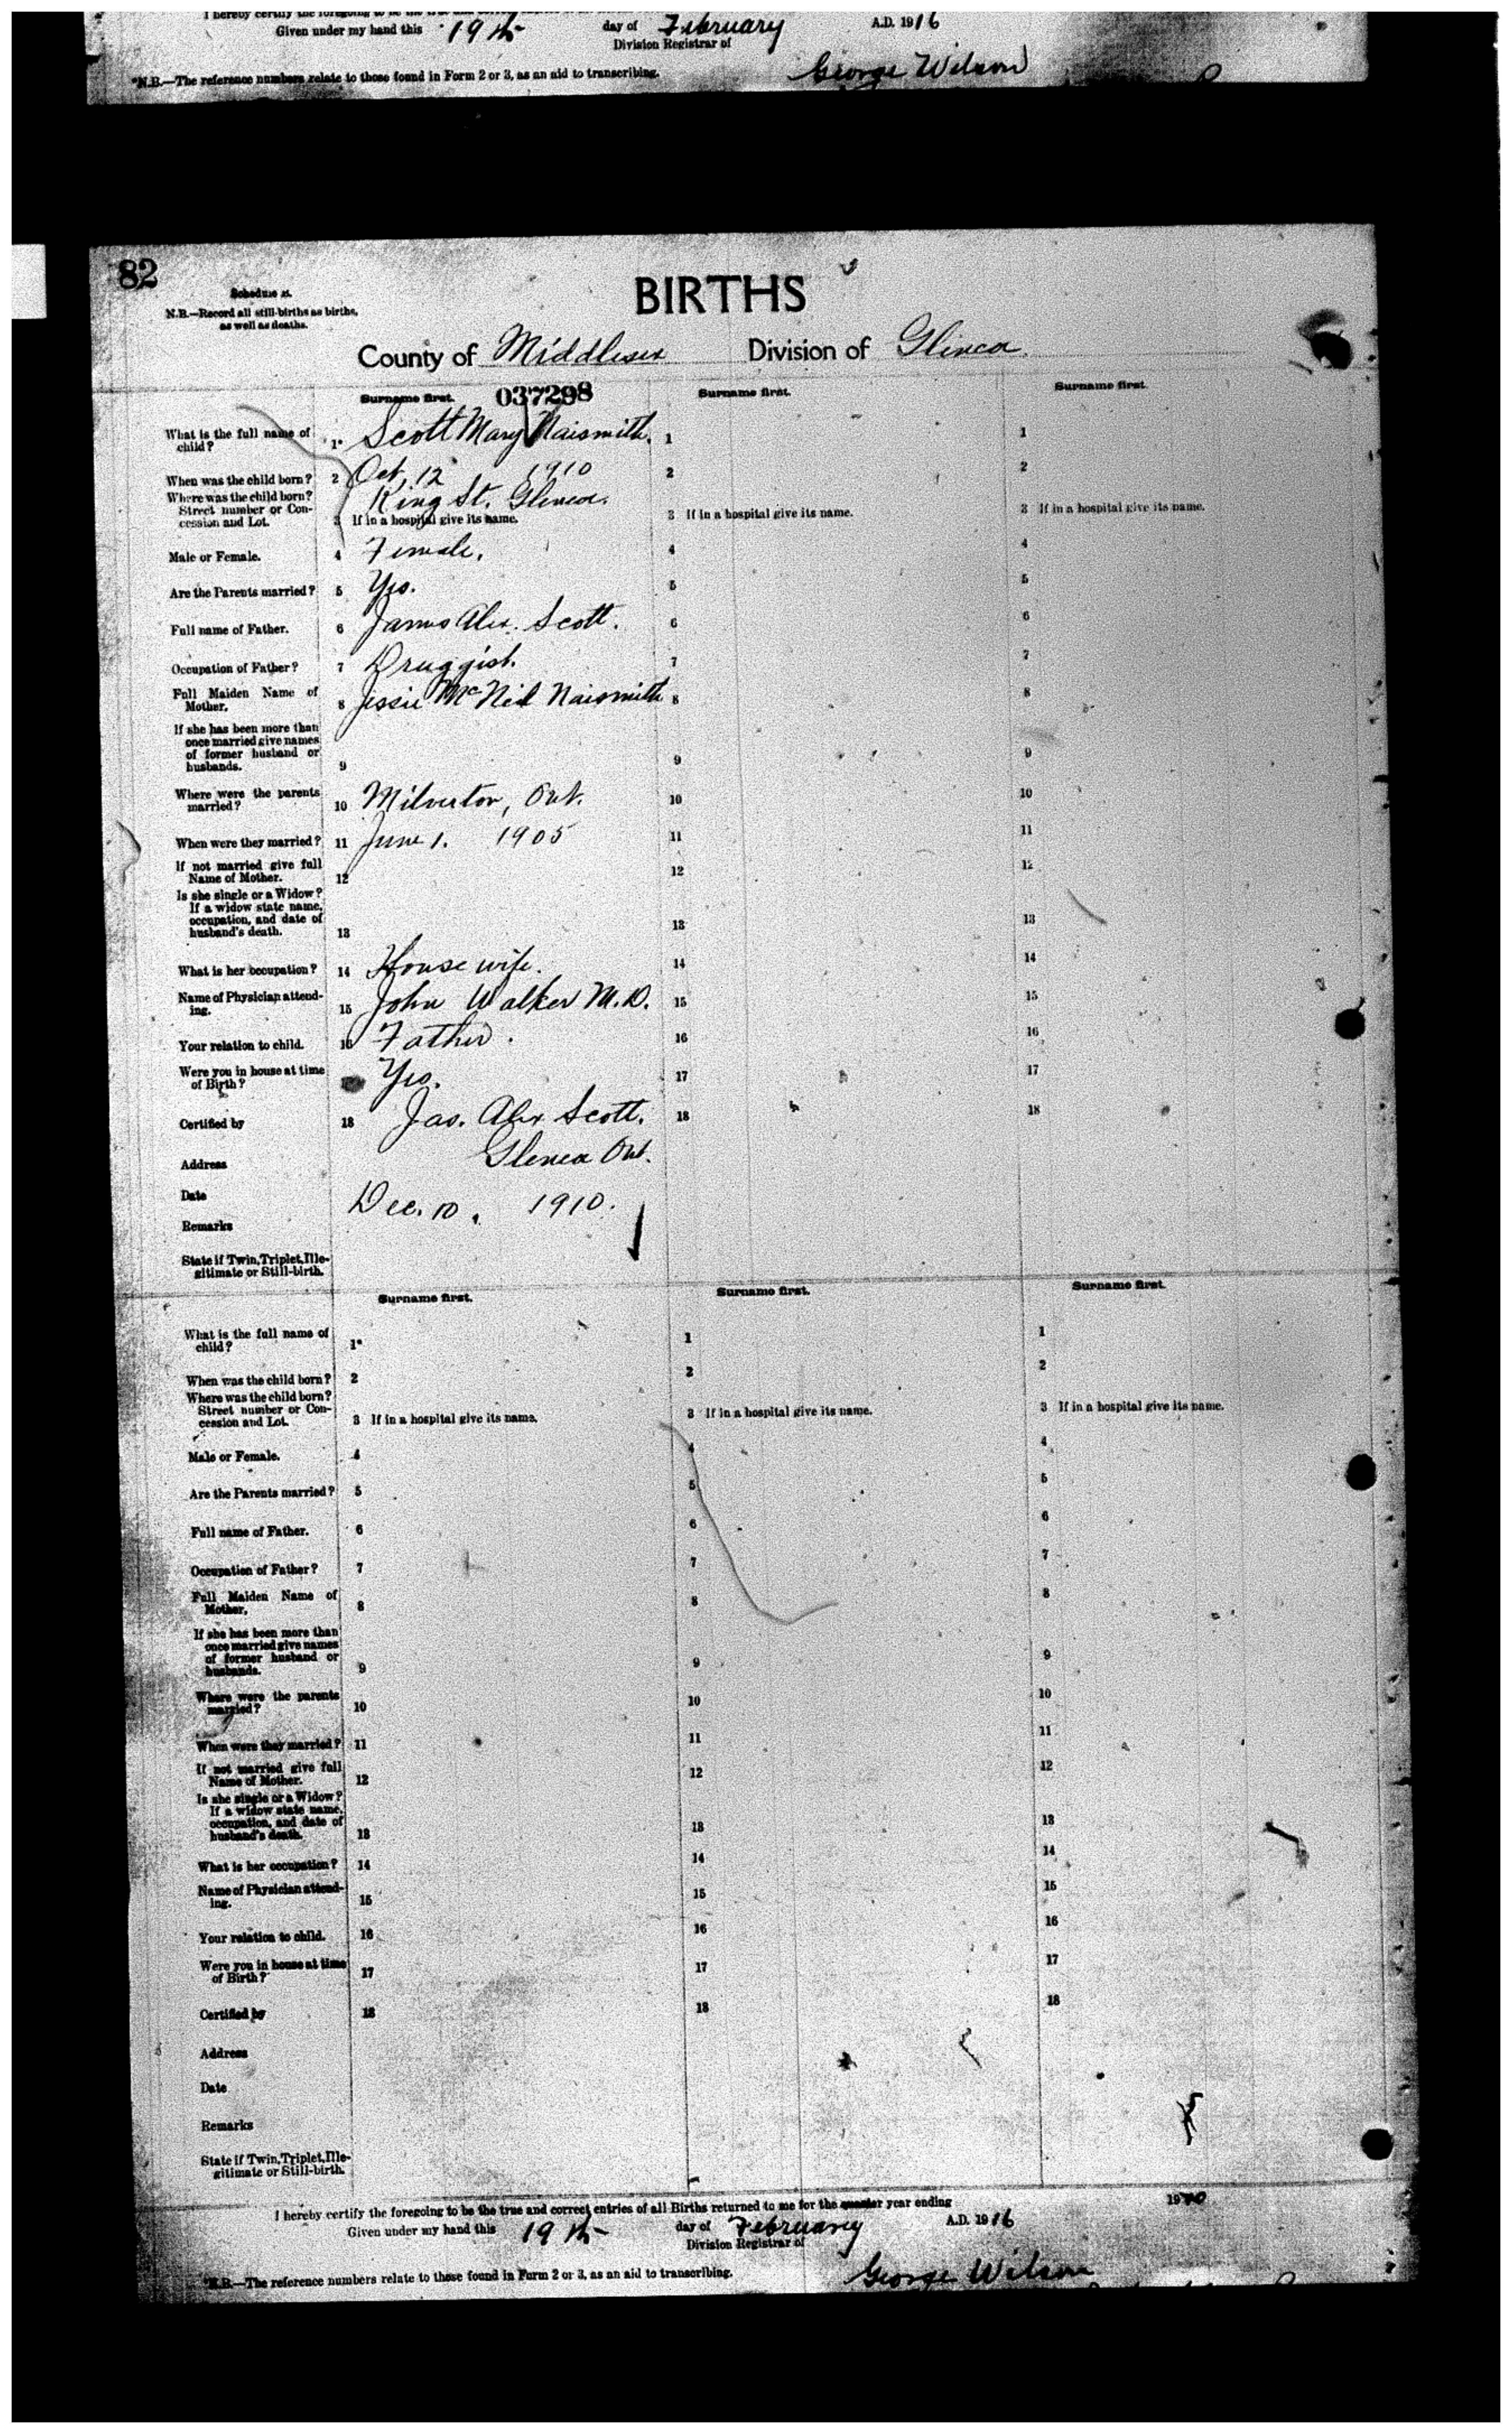 I hereby certify the foregoing to be the true and correct entries of
Given under my hand this 19th day of February A.D. 1916
Division Registrar of
*N.B.—The reference numbers relate to those found in Form 2 or 3, as an aid to transcribing. George Wilson
82
Schedule A.
N.B.—Record all still-births as births,
as well as deaths.
BIRTHS
County of Middlesex Division of Glencoe
Surname first. 037298 Surname first. Surname first.
What is the full name of
child? 1* Scott Mary Naismith. 1 1
When was the child born? 2 Oct. 12 1910 2 2
Where was the child born?
Street number or Con-
cession and Lot. King St. Glencoe.
3 If in a hospital give its name. 3 If in a hospital give its name. 3 If in a hospital give its name.
Male or Female. 4 Female. 4 4
Are the Parents married? 5 Yes. 5 5
Full name of Father. 6 James Alex. Scott. 6 6
Occupation of Father? 7 Druggist. 7 7
Full Maiden Name of
Mother. 8 Jessie McNeil Naismith 8 8
If she has been more than
once married give names
of former husband or
husbands. 9 9 9
Where were the parents
married? 10 Milverton, Ont. 10 10
When were they married? 11 June 1. 1905 11 11
If not married give full
Name of Mother. 12 12 12
Is she single or a Widow?
If a widow state name,
occupation, and date of
husband's death. 13 13 13
What is her occupation? 14 House wife. 14 14
Name of Physician attend-
ing. 15 John Walker M.D. 15 15
Your relation to child. 16 Father. 16 16
Were you in house at time
of Birth? Yes. 17 17
Certified by 18 Jas. Alex Scott. 18 18
Address Glencoe Ont.
Date Dec. 10. 1910.
Remarks
State if Twin, Triplet, Ille-
gitimate or Still-birth.
Surname first. Surname first. Surname first.
What is the full name of
child? 1* 1 1
When was the child born? 2 2 2
Where was the child born?
Street number or Con-
cession and Lot. 3 If in a hospital give its name. 3 If in a hospital give its name. 3 If in a hospital give its name.
Male or Female. 4 4 4
Are the Parents married? 5 5 5
Full name of Father. 6 6 6
Occupation of Father? 7 7 7
Full Maiden Name of
Mother, 8 8 8
If she has been more than
once married give names
of former husband or
husbands. 9 9 9
Where were the parents
married? 10 10 10
When were they married? 11 11 11
If not married give full
Name of Mother. 12 12 12
Is she single or a Widow?
If a widow state name,
occupation, and date of
husband's death. 13 13 13
What is her occupation? 14 14 14
Name of Physician attend-
ing. 15 15 15
Your relation to child. 16 16 16
Were you in house at time
of Birth? 17 17 17
Certified by 18 18 18
Address
Date
Remarks
State if Twin, Triplet, Ille-
gitimate or Still-birth.
I hereby certify the foregoing to be the true and correct entries of all Births returned to me for the quarter year ending 1910
Given under my hand this 19th day of February A.D. 1916
Division Registrar of
*N.B.—The reference numbers relate to those found in Form 2 or 3, as an aid to transcribing. George Wilson